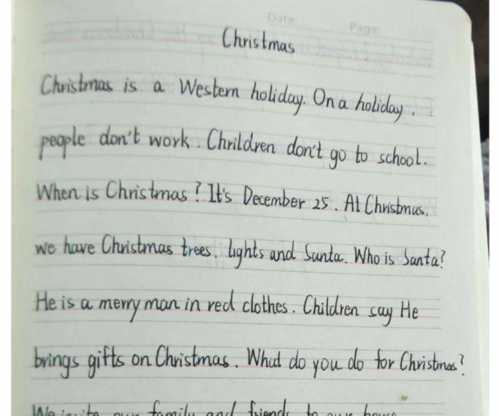 Date: Page:
Christmas
Christmas is a Western holiday. On a holiday,
people don't work. Chrildren don't go to school.
When is Christmas? It's December 25. At Christmas,
we have Christmas trees, lights and Santa. Who is Santa?
He is a merry man in red clothes. Children say He
brings gifts on Christmas. What do you do for Christmas?
We invite our family and friends to our house